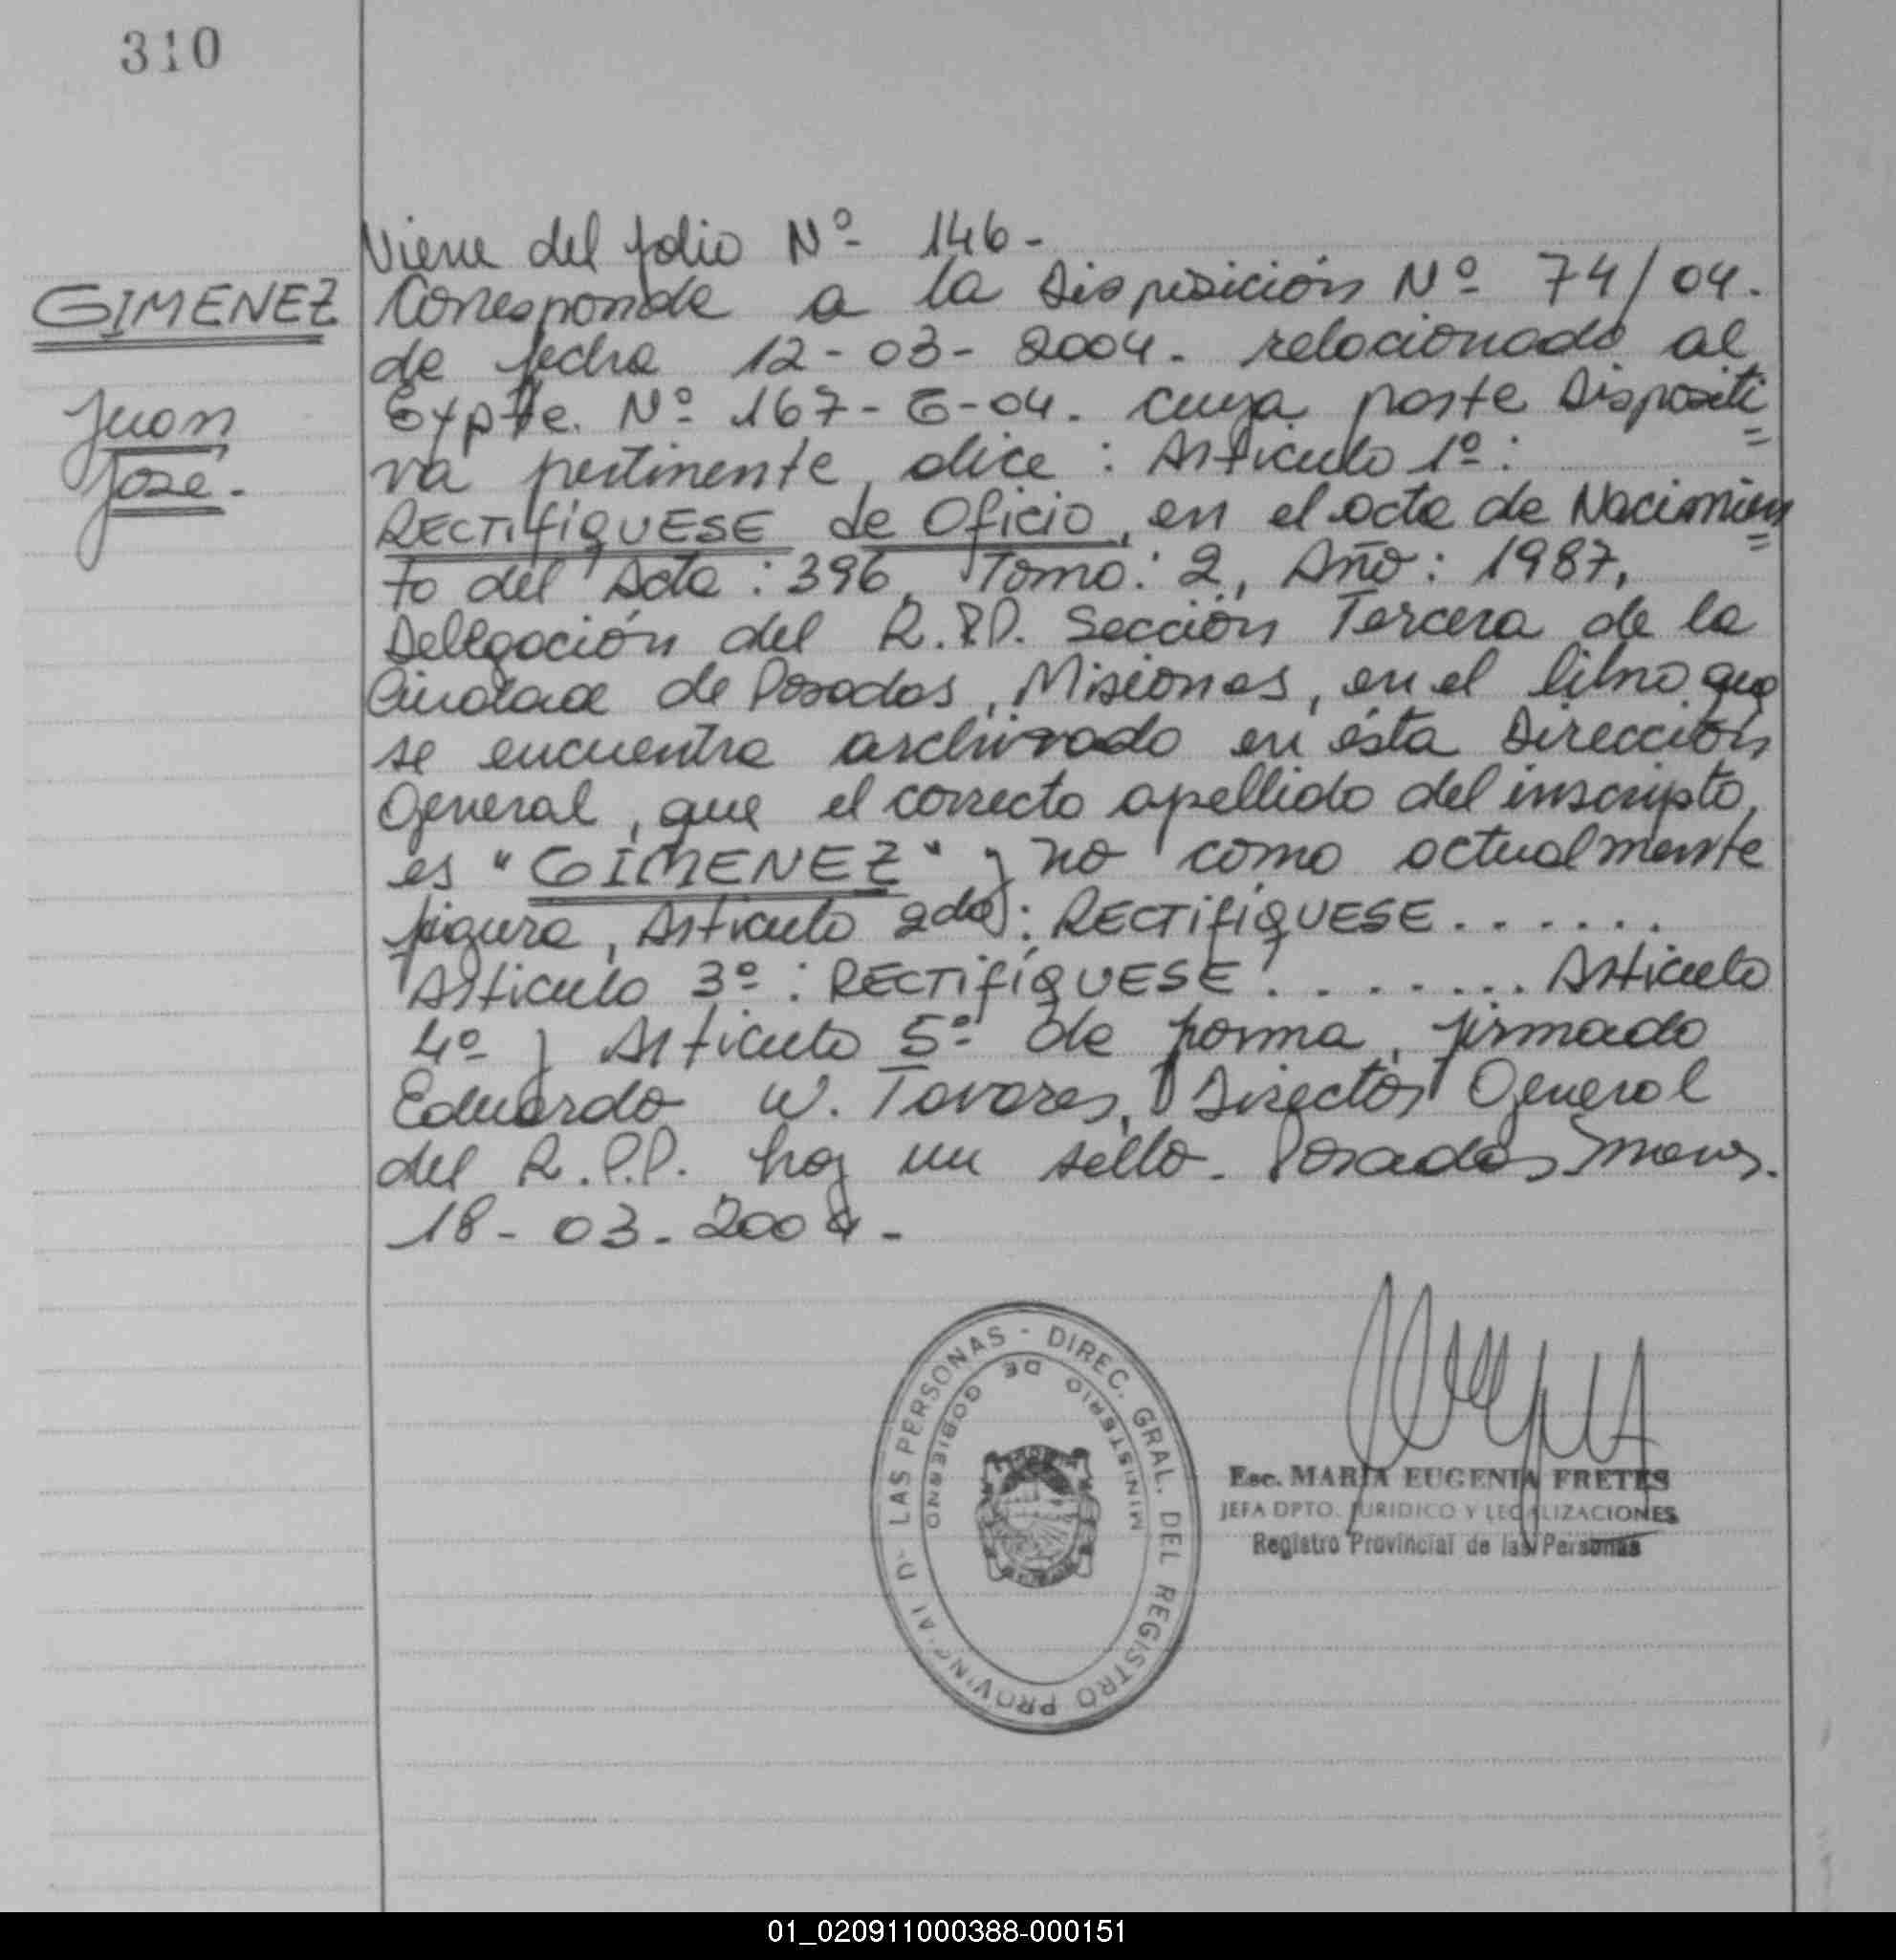 310
GIMENEZ
Juan
José.
Viene del folio Nº 146-
Corresponde a la Disposición Nº 74/04.
de fecha 12-03-2004. relacionado al
Expte. Nº 167-G-04. cuya parte Dispositi
va pertinente, dice: Artículo 1º:
RECTIFÍQUESE de Oficio, en el acta de Nacimien
to del Acta: 396, Tomo: 2, Año: 1987,
Delegación del R.P.P. Sección Tercera de la
Ciudad de Posadas, Misiones, en el libro que
se encuentra archivado en ésta Dirección
General, que el correcto apellido del inscripto,
es "GIMENEZ" y no como actualmente
figura, Artículo 2do: RECTIFÍQUESE.......
Artículo 3º: RECTIFÍQUESE........ Artículo
4º y Artículo 5º de forma, firmado
Eduardo W. Tavares, Director General
del R.P.P. hay un sello. Posadas Mnes.
18-03-2004-
DIREC. GRAL. DEL REGISTRO PROVINCIAL DE LAS PERSONAS -
MINISTERIO DE GOBIERNO
Esc. MARIA EUGENIA FRETES
JEFA DPTO. JURIDICO Y LEGALIZACIONES
Registro Provincial de las Personas
01_020911000388-000151